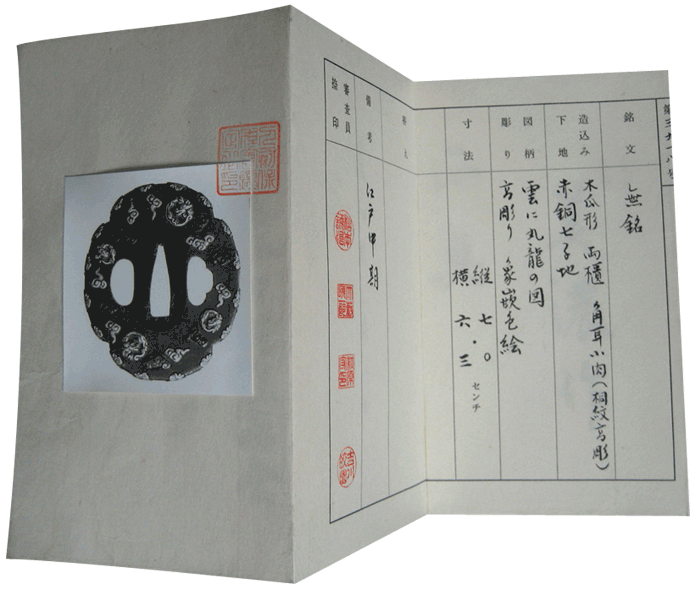 銘文
無銘
造込み
木瓜形 両櫃 角耳小肉(桐紋高彫)
下地
赤銅七子地
図柄
雲に丸龍の図
彫り
高彫り 象嵌色絵
寸法
縦 七・〇
横 六・三
センチ
備考
江戸中期
審査員
捺印